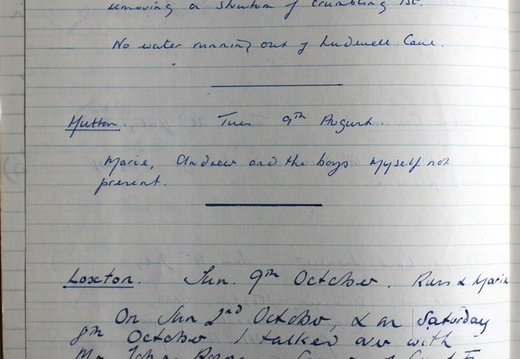 removing a stratum of crumbling 1st.
No water running out of Ludwell Cave.
Hutton. Tues 9th August.
Marie, Andrew and the boys Myself not
present.
Loxton. Sun. 9th October. Russ & Marie
On Sun 2nd October, & on Saturday
8th October I talked over with
Mr John